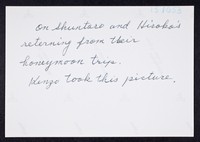 On Shuntaro and Hiroko's
returning from their
honeymoon trip.
Kenzo took this picture.